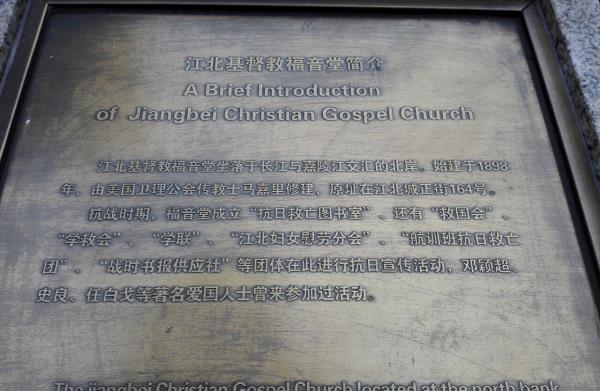 江北基督教福音堂简介
A Brief Introduction
of Jiangbei Christian Gospel Church
江北基督教福音堂坐落于长江与嘉陵江交汇的北岸。始建于1898
年，由美国卫理公会传教士马嘉里修建，原址在江北城正街164号。
抗战时期，福音堂成立“抗日救亡图书室”、还有“救国会”、
“学救会”、“学联”、“江北妇女慰劳分会”、“航训班抗日救亡
团”、“战时书报供应社”等团体在此进行抗日宣传活动，邓颖超、
史良、任白戈等著名爱国人士曾来参加过活动。
The jiangbei Christian Gospel Church located at the north bank